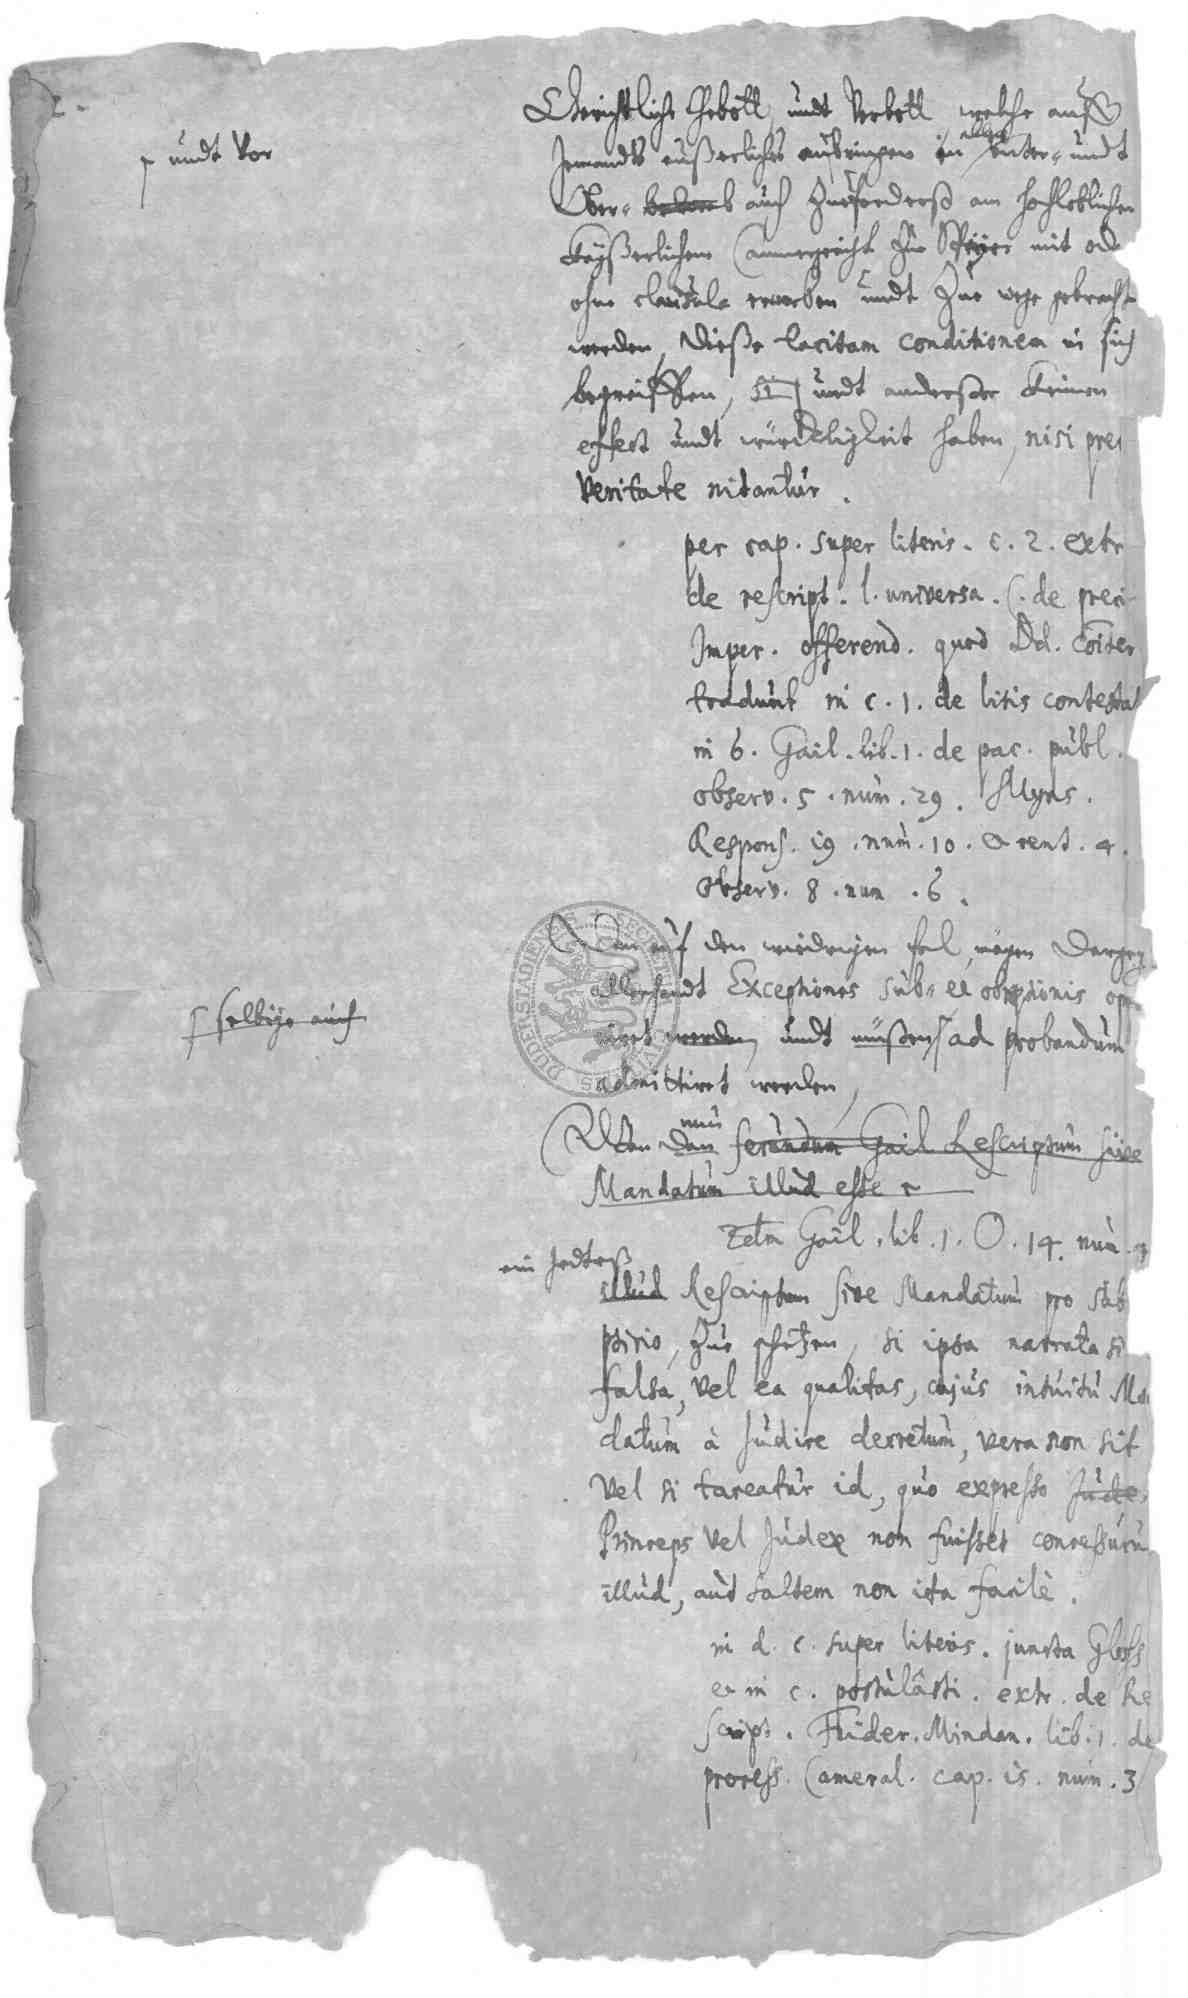 Gerichtliche Gebott, undt Verbott welche auff
undt Vor
Jemandts eußerliches anbringen in allen Unter- undt
Ober- auch Zuefordersß am hochloblichen
Kayßerlichen Cammergericht Zue Speyer mit oder
ohne clausula erworben undt Zue wege gebracht
werden, Dieße tacitam conditionem in sich
begreiffen, undt anderster keinen
effect undt würckligkeit haben, nisi preces
veritate nitantur.
per cap. super literis. c. 2. extr
de rescript. l. universa. C. de preci
Imper. offerend. quod Dd. coiter
tradunt in c. 1. de litis contestat
in 6. Gail. lib. 1. de pac. publ.
observ. 5. num. 29. Myns.
Respons. 19. num. 10. & cent. 4.
Observ. 8. num. 6.
auf den wiedrigen fal, mögen Dargeg
allerhandt Exceptiones sub- et obreptionis opp
selbige auch
niret werden, undt müßen ad probandum
admittiret werden,
nun
Wan Dan secundum Gail Rescriptum sive
Mandatum illud esse
Gail. lib. 1. O. 14. num.
ein Jedtes
illud Rescriptum sive Mandatum pro sub
pticio, Zue schetzen, si ipsa narrata si
falsa, vel ea qualitas, cujus intuitu Man
datum à Judice decretum, vera non sit
vel si taceatur id, quo expresso Jude
Princeps vel Judex non fuisset concessuru
illud, aut saltem non ita facilè.
in d. c. super literis. juncta Gloss
et in c. postulasti. extr. de Re
script. Frider. Mindan. lib. 1. de
process. Cameral. cap. 15. num. 3